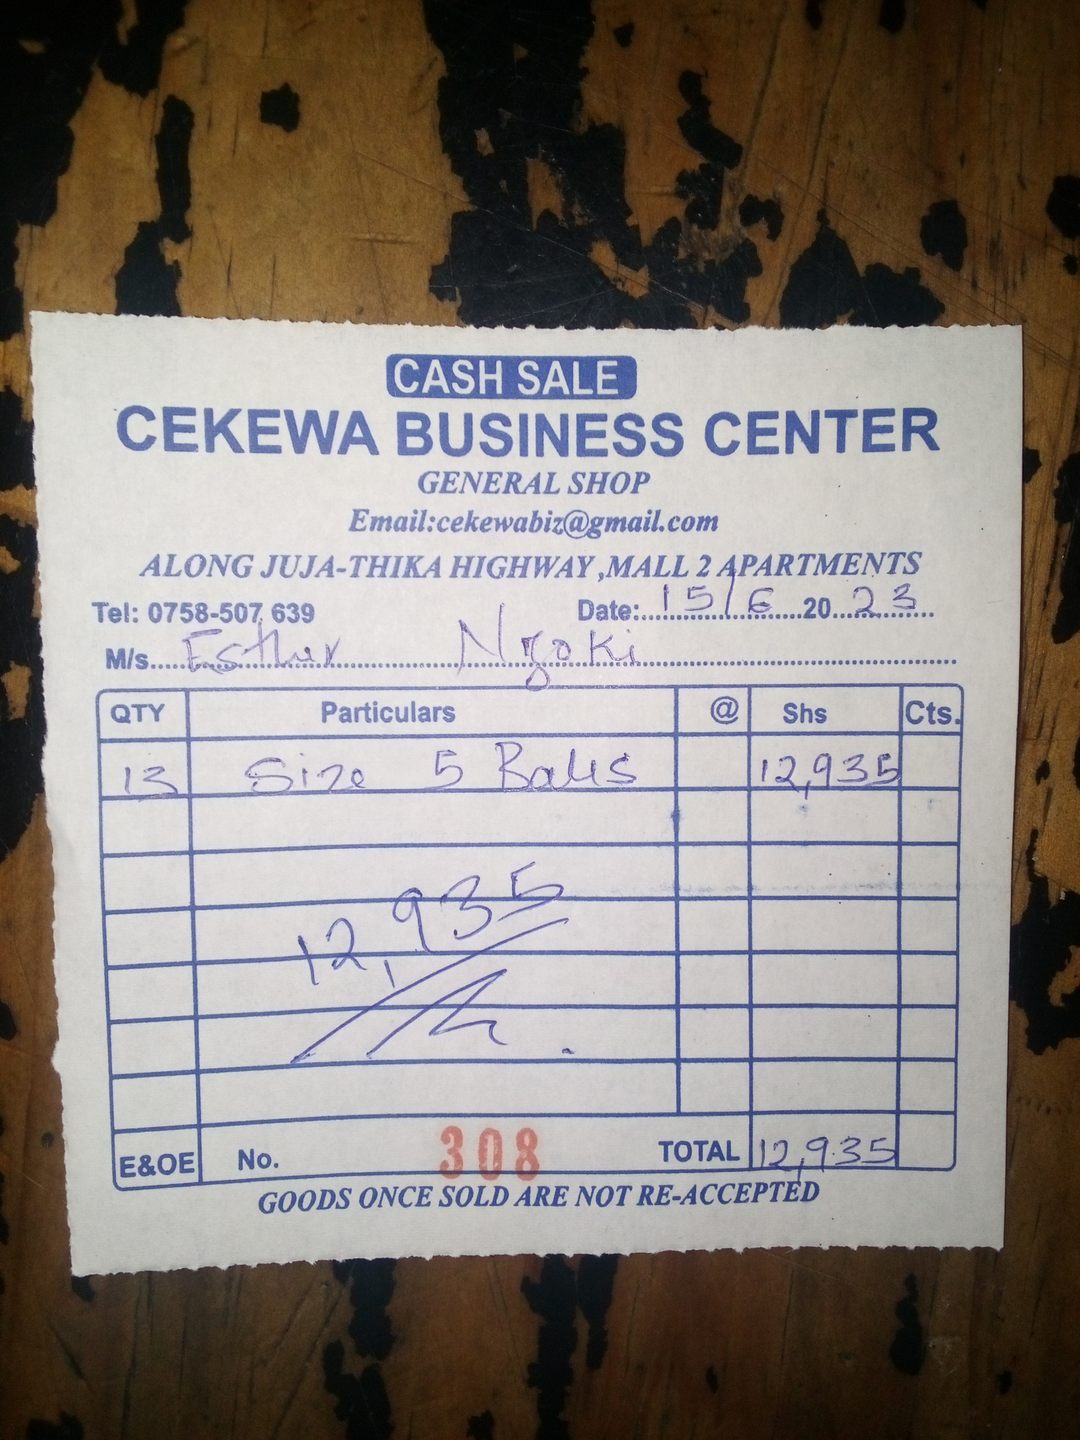 CASH SALE
CEKEWA BUSINESS CENTER
GENERAL SHOP
Email:cekewabiz@gmail.com
ALONG JUJA-THIKA HIGHWAY ,MALL 2 APARTMENTS
Tel: 0758-507 639 Date:..15/6...20..23..
M/s....Esther Nzoki....
QTY Particulars @ Shs Cts.
13 Size 5 Balls 12,935
12,935
E&OE No. 308 TOTAL 12,935
GOODS ONCE SOLD ARE NOT RE-ACCEPTED